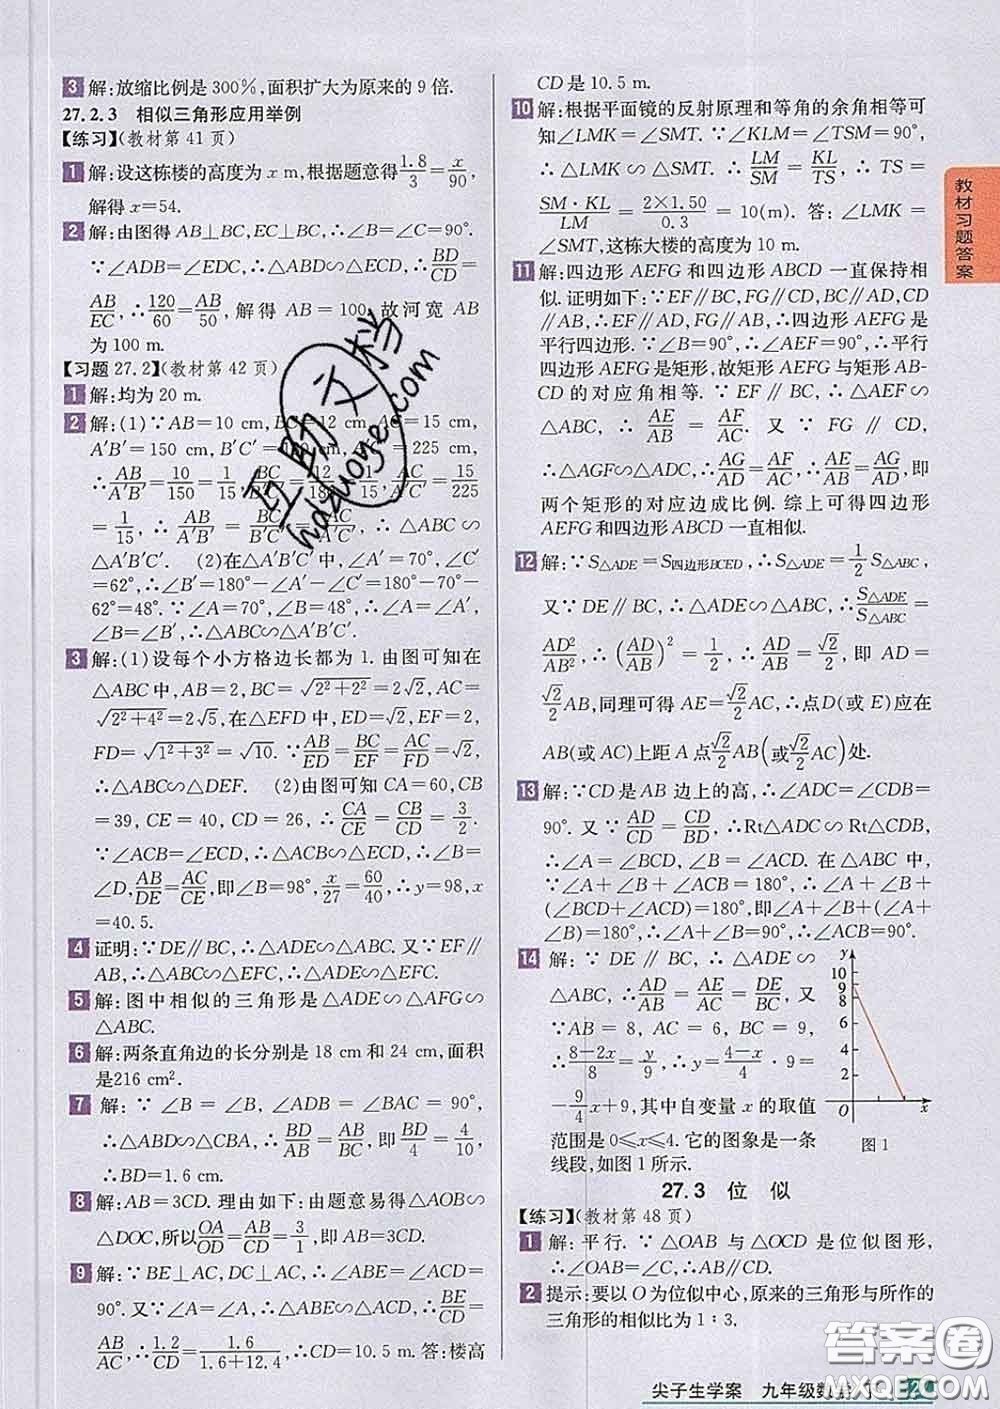 3 解:放缩比例是300%,面积扩大为原来的9倍.
27.2.3 相似三角形应用举例
【练习】(教材第41页)
1 解:设这栋楼的高度为x m,根据题意得1.8/3=x/90,
解得x=54.
2 解:由图得AB⊥BC,EC⊥BC,∴∠B=∠C=90°.
∵∠ADB=∠EDC,∴△ABD∽△ECD,∴BD/CD=
AB/EC,∴120/60=AB/50,解得AB=100,故河宽AB
为100 m.
【习题27.2】(教材第42页)
1 解:均为20 m.
2 解:(1)∵AB=10 cm,BC=12 cm,AC=15 cm,
A′B′=150 cm,B′C′=180 cm,A′C′=225 cm,
∴AB/A′B′=10/150=1/15,BC/B′C′=12/180=1/15,AC/A′C′=15/225
=1/15,∴AB/A′B′=BC/B′C′=AC/A′C′,∴△ABC∽
△A′B′C′. (2)在△A′B′C′中,∠A′=70°,∠C′
=62°,∴∠B′=180°-∠A′-∠C′=180°-70°-
62°=48°.∵∠A=70°,∠B=48°,∴∠A=∠A′,
∠B=∠B′,∴△ABC∽△A′B′C′.
3 解:(1)设每个小方格边长都为1.由图可知在
△ABC中,AB=2,BC=√(2²+2²)=2√2,AC=
√(2²+4²)=2√5,在△EFD中,ED=√2,EF=2,
FD=√(1²+3²)=√10.∵AB/ED=BC/EF=AC/FD=√2,
∴△ABC∽△DEF. (2)由图可知CA=60,CB
=39,CE=40,CD=26,∴CA/CE=CB/CD=3/2.
∵∠ACB=∠ECD,∴△ACB∽△ECD,∴∠B=
∠D,AB/DE=AC/CE,即∠B=98°,x/27=60/40,∴y=98,x
=40.5.
4 证明:∵DE∥BC,∴△ADE∽△ABC.又∵EF∥
AB,∴△ABC∽△EFC,∴△ADE∽△EFC.
5 解:图中相似的三角形是△ADE∽△AFG∽
△ABC.
6 解:两条直角边的长分别是18 cm和24 cm,面积
是216 cm².
7 解:∵∠B=∠B,∠ADB=∠BAC=90°,
∴△ABD∽△CBA,∴BD/AB=AB/BC,即BD/4=4/10,
∴BD=1.6 cm.
8 解:AB=3CD.理由如下:由题意易得△AOB∽
△DOC,所以OA/OD=AB/CD=3/1,即AB=3CD.
9 解:∵BE⊥AC,DC⊥AC,∴∠ABE=∠ACD=
90°.又∵∠A=∠A,∴△ABE∽△ACD,∴BE/CD=
AB/AC,∴1.2/CD=1.6/(1.6+12.4),∴CD=10.5 m.答:楼高
CD是10.5 m.
10 解:根据平面镜的反射原理和等角的余角相等可
知∠LMK=∠SMT.∵∠KLM=∠TSM=90°,
∴△LMK∽△SMT.∴LM/SM=KL/TS,∴TS=
SM·KL/LM=2×1.50/0.3=10(m).答:∠LMK=
∠SMT,这栋大楼的高度为10 m.
11 解:四边形AEFG和四边形ABCD一直保持相
似.证明如下:∵EF∥BC,FG∥CD,BC∥AD,CD
∥AB,∴EF∥AD,FG∥AB,∴四边形AEFG是
平行四边形.∵四边形AEFG的∠A=90°,∴平行
四边形AEFG是矩形,故矩形AEFG与矩形AB-
CD的对应角相等.∵EF∥BC,∴△AEF∽
△ABC,∴AE/AB=AF/AC.又∵FG∥CD,
∴△AGF∽△ADC,∴AG/AD=AF/AC,∴AE/AB=AG/AD,即
两个矩形的对应边成比例.综上可得四边形
AEFG和四边形ABCD一直相似.
12 解:∵S△ADE=S四边形BCED,∴S△ADE=1/2 S△ABC,
又∵DE∥BC,∴△ADE∽△ABC,∴S△ADE/S△ABC=
AD²/AB²,∴(AD/AB)²=1/2,∴AD/AB=√2/2,即AD=
√2/2AB,同理可得AE=√2/2AC,∴点D(或E)应在
AB(或AC)上距A点√2/2AB(或√2/2AC)处.
13 解:∵CD是AB边上的高,∴∠ADC=∠CDB=
90°.又∵AD/CD=CD/BD,∴Rt△ADC∽Rt△CDB,
∴∠A=∠BCD,∠B=∠ACD.在△ABC中,
∵∠A+∠B+∠ACB=180°,∴∠A+∠B+
(∠BCD+∠ACD)=180°,即∠A+∠B+(∠A+
∠B)=180°,∴∠A+∠B=90°,∴∠ACB=90°.
14 解:∵DE∥BC,∴△ADE∽
△ABC,∴AD/AB=AE/AC=DE/BC,又
∵AB=8,AC=6,BC=9,
∴(8-2x)/8=y/9,∴y=(4-x)/4·9=
-9/4x+9,其中自变量x的取值
范围是0≤x≤4.它的图象是一条
线段,如图1所示.
y
10
9
8
6
4
2
O
x
图1
27.3 位似
【练习】(教材第48页)
1 解:平行.∵△OAB与△OCD是位似图形,
∴∠OAB=∠C,∴AB∥CD.
2 提示:要以O为位似中心,原来的三角形与所作的
三角形的相似比为1∶3.
教材习题答案
互助文档
hdzuoye.com
答案圈
尖子生学案 九年级数学